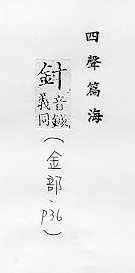 四聲篇海
針
音鍼
義同
(金部、p36)